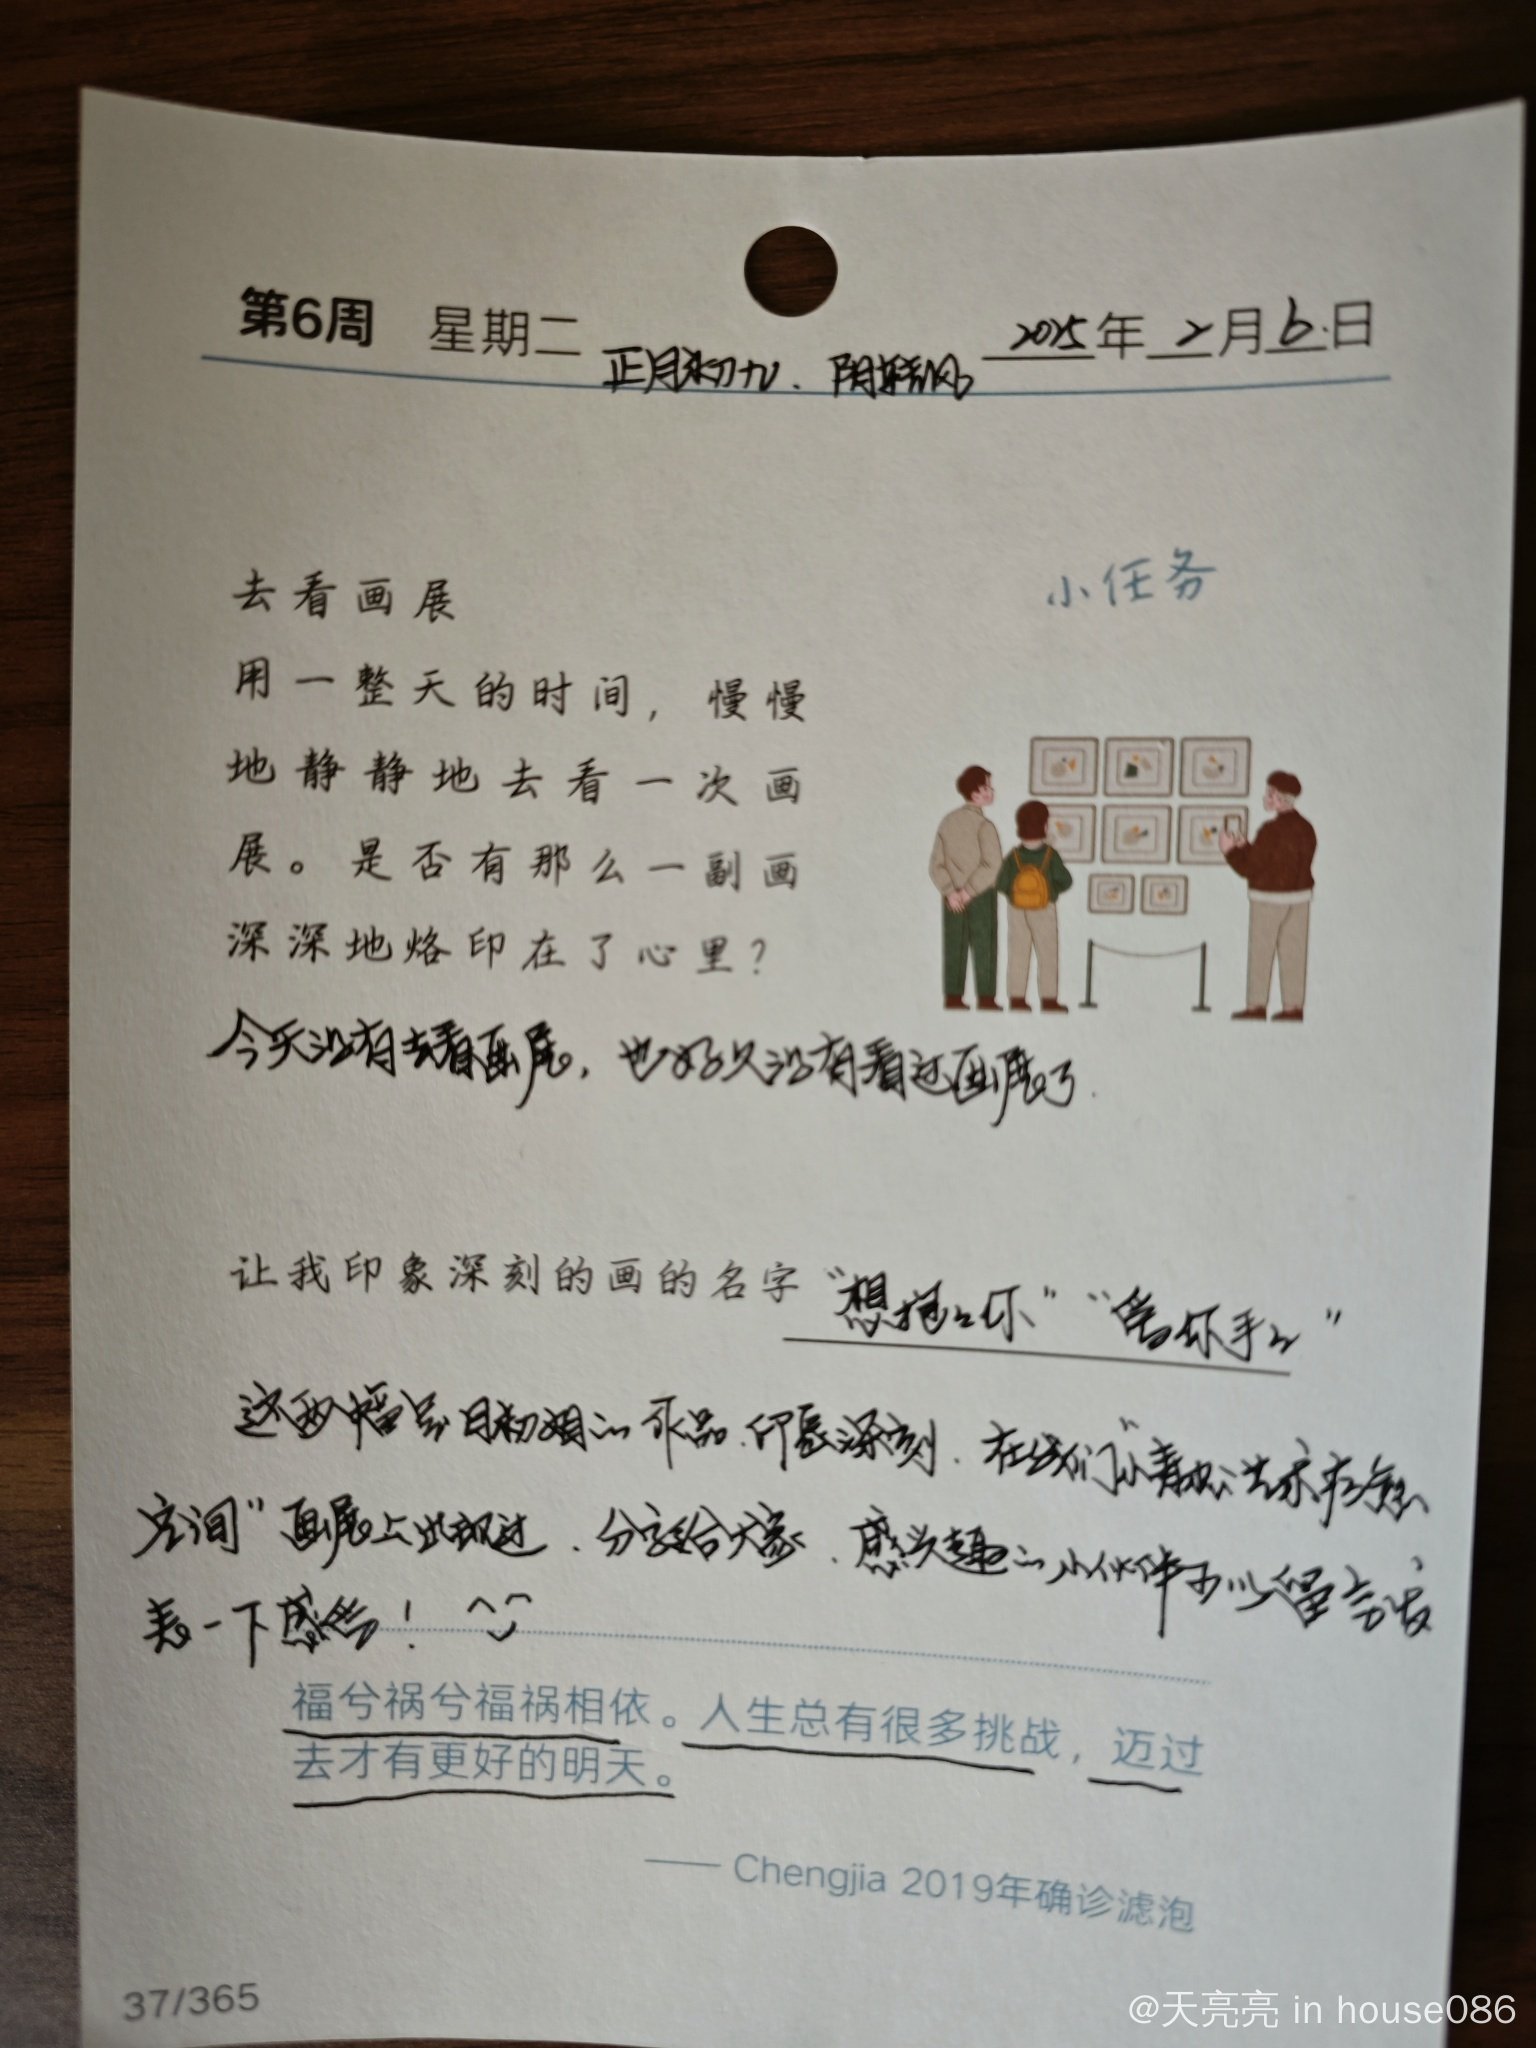 第6周 星期二 2025年2月6日
正月初九. 阴转风
去看画展
小任务
用一整天的时间，慢慢
地静静地去看一次画
展。是否有那么一副画
深深地烙印在了心里？
今天没有去看画展, 也好久没有看过画展了.
让我印象深刻的画的名字 “想抱抱你” “手”
这两幅是 作品.印象深刻. 在我们“小青
空间”画展上出现过. 分享给大家. 感兴趣的小伙伴可以留言发
表一下感言！
福兮祸兮福祸相依。人生总有很多挑战，迈过
去才有更好的明天。
—— Chengjia 2019年确诊滤泡
37/365
@天亮亮 in house086